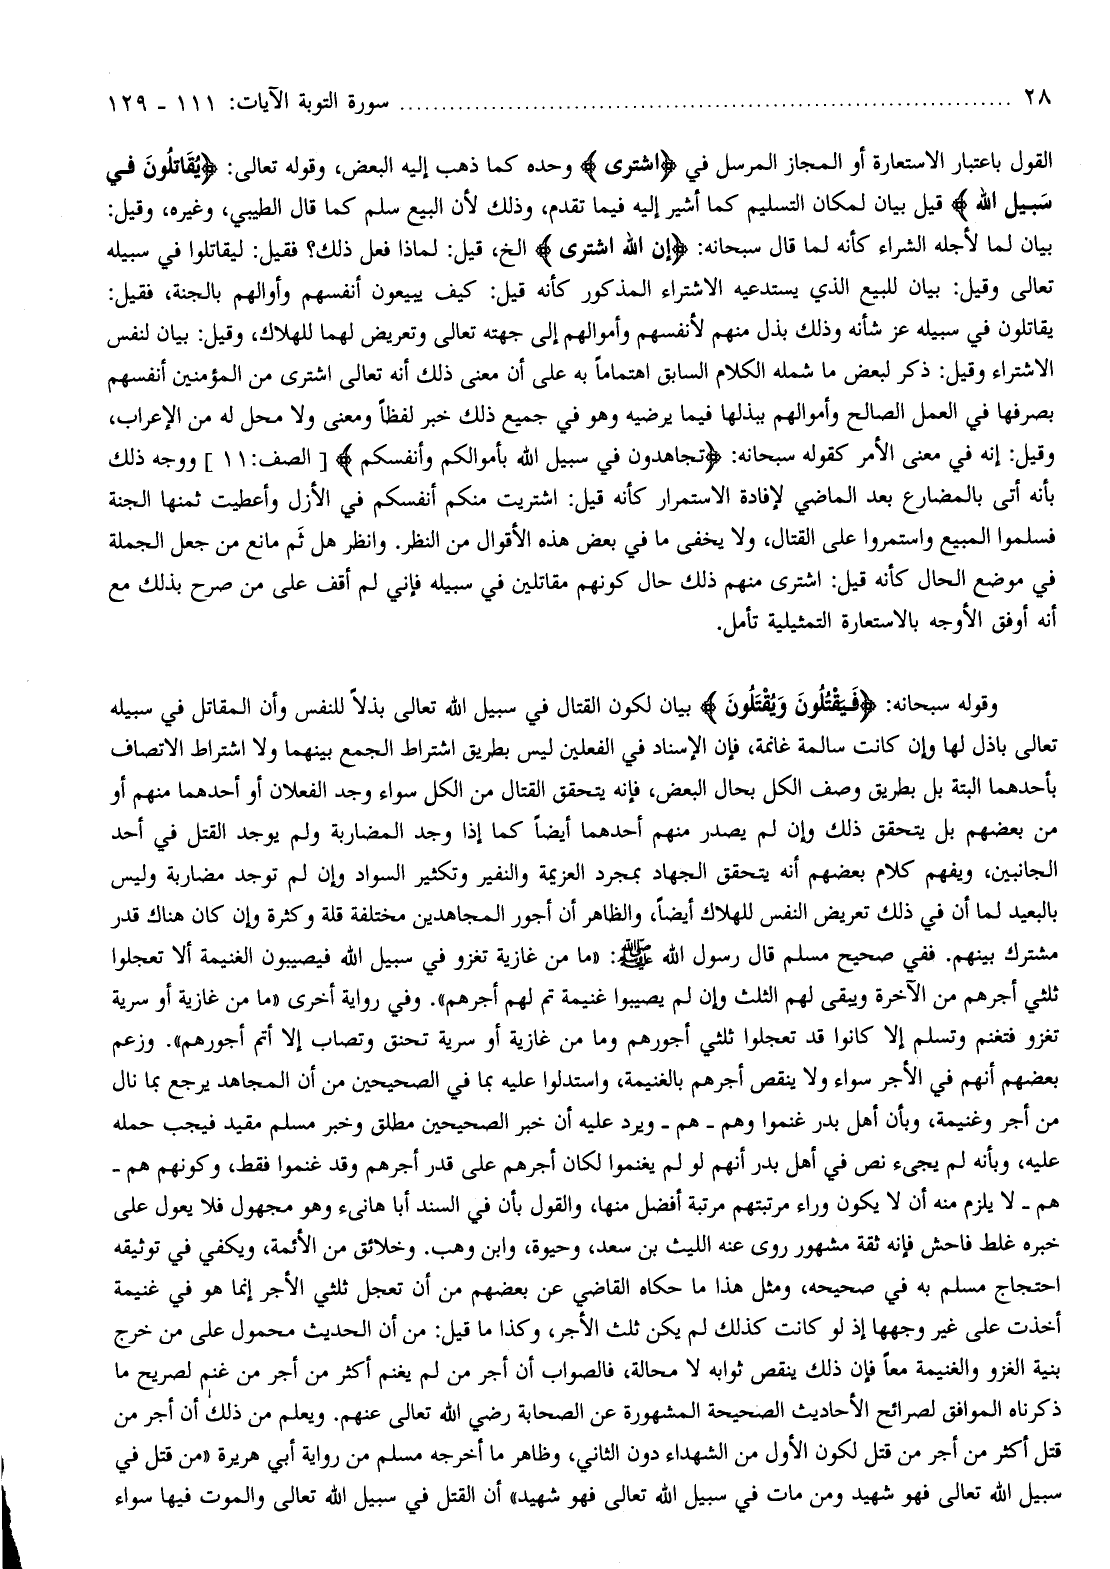 ٢٨ ........................................................ سورة التوبة الآيات: ١١١ - ١٢٩
القول باعتبار الاستعارة أو المجاز المرسل في ﴿اشترى﴾ وحده كما ذهب إليه البعض، وقوله تعالى: ﴿يُقَاتلُونَ في
سَبيل الله﴾ قيل بيان لمكان التسليم كما أشير إليه فيما تقدم، وذلك لأن البيع سلم كما قال الطيبي، وغيره، وقيل:
بيان لما لأجله الشراء كأنه لما قال سبحانه: ﴿إن الله اشترى﴾ الخ، قيل: لماذا فعل ذلك؟ فقيل: ليقاتلوا في سبيله
تعالى وقيل: بيان للبيع الذي يستدعيه الاشتراء المذكور كأنه قيل: كيف يبيعون أنفسهم وأوالهم بالجنة، فقيل:
يقاتلون في سبيله عز شأنه وذلك بذل منهم لأنفسهم وأموالهم إلى جهته تعالى وتعريض لهما للهلاك، وقيل: بيان لنفس
الاشتراء وقيل: ذكر لبعض ما شمله الكلام السابق اهتماماً به على أن معنى ذلك أنه تعالى اشترى من المؤمنين أنفسهم
بصرفها في العمل الصالح وأموالهم ببذلها فيما يرضيه وهو في جميع ذلك خبر لفظاً ومعنى ولا محل له من الإعراب،
وقيل: إنه في معنى الأمر كقوله سبحانه: ﴿تجاهدون في سبيل الله بأموالكم وأنفسكم﴾ [ الصف:١١ ] ووجه ذلك
بأنه أتى بالمضارع بعد الماضي لإفادة الاستمرار كأنه قيل: اشتريت منكم أنفسكم في الأزل وأعطيت ثمنها الجنة
فسلموا المبيع واستمروا على القتال، ولا يخفى ما في بعض هذه الأقوال من النظر. وانظر هل ثَم مانع من جعل الجملة
في موضع الحال كأنه قيل: اشترى منهم ذلك حال كونهم مقاتلين في سبيله فإني لم أقف على من صرح بذلك مع
أنه أوفق الأوجه بالاستعارة التمثيلية تأمل.
وقوله سبحانه: ﴿فَيَقْتُلُونَ وَيُقْتَلُونَ﴾ بيان لكون القتال في سبيل الله تعالى بذلاً للنفس وأن المقاتل في سبيله
تعالى باذل لها وإن كانت سالمة غانمة، فإن الإسناد في الفعلين ليس بطريق اشتراط الجمع بينهما ولا اشتراط الاتصاف
بأحدهما البتة بل بطريق وصف الكل بحال البعض، فإنه يتحقق القتال من الكل سواء وجد الفعلان أو أحدهما منهم أو
من بعضهم بل يتحقق ذلك وإن لم يصدر منهم أحدهما أيضاً كما إذا وجد المضاربة ولم يوجد القتل في أحد
الجانبين، ويفهم كلام بعضهم أنه يتحقق الجهاد بمجرد العزيمة والنفير وتكثير السواد وإن لم توجد مضاربة وليس
بالبعيد لما أن في ذلك تعريض النفس للهلاك أيضاً، والظاهر أن أجور المجاهدين مختلفة قلة وكثرة وإن كان هناك قدر
مشترك بينهم. ففي صحيح مسلم قال رسول الله ﷺ: «ما من غازية تغزو في سبيل الله فيصيبون الغنيمة ألا تعجلوا
ثلثي أجرهم من الآخرة ويبقى لهم الثلث وإن لم يصيبوا غنيمة تم لهم أجرهم». وفي رواية أخرى «ما من غازية أو سرية
تغزو فتغنم وتسلم إلا كانوا قد تعجلوا ثلثي أجورهم وما من غازية أو سرية تحنق وتصاب إلا أتم أجورهم». وزعم
بعضهم أنهم في الأجر سواء ولا ينقص أجرهم بالغنيمة، واستدلوا عليه بما في الصحيحين من أن المجاهد يرجع بما نال
من أجر وغنيمة، وبأن أهل بدر غنموا وهم ـ هم ـ ويرد عليه أن خبر الصحيحين مطلق وخبر مسلم مقيد فيجب حمله
عليه، وبأنه لم يجىء نص في أهل بدر أنهم لو لم يغنموا لكان أجرهم على قدر أجرهم وقد غنموا فقط، وكونهم هم ـ
هم ـ لا يلزم منه أن لا يكون وراء مرتبتهم مرتبة أفضل منها، والقول بأن في السند أبا هانىء وهو مجهول فلا يعول على
خبره غلط فاحش فإنه ثقة مشهور روى عنه الليث بن سعد، وحيوة، وابن وهب. وخلائق من الأئمة، ويكفي في توثيقه
احتجاج مسلم به في صحيحه، ومثل هذا ما حكاه القاضي عن بعضهم من أن تعجل ثلثي الأجر إنما هو في غنيمة
أخذت على غير وجهها إذ لو كانت كذلك لم يكن ثلث الأجر، وكذا ما قيل: من أن الحديث محمول على من خرج
بنية الغزو والغنيمة معاً فإن ذلك ينقص ثوابه لا محالة، فالصواب أن أجر من لم يغنم أكثر من أجر من غنم لصريح ما
ذكرناه الموافق لصرائح الأحاديث الصحيحة المشهورة عن الصحابة رضي الله تعالى عنهم. ويعلم من ذلك أن أجر من
قتل أكثر من أجر من قتل لكون الأول من الشهداء دون الثاني، وظاهر ما أخرجه مسلم من رواية أبي هريرة «من قتل في
سبيل الله تعالى فهو شهيد ومن مات في سبيل الله تعالى فهو شهيد» أن القتل في سبيل الله تعالى والموت فيها سواء